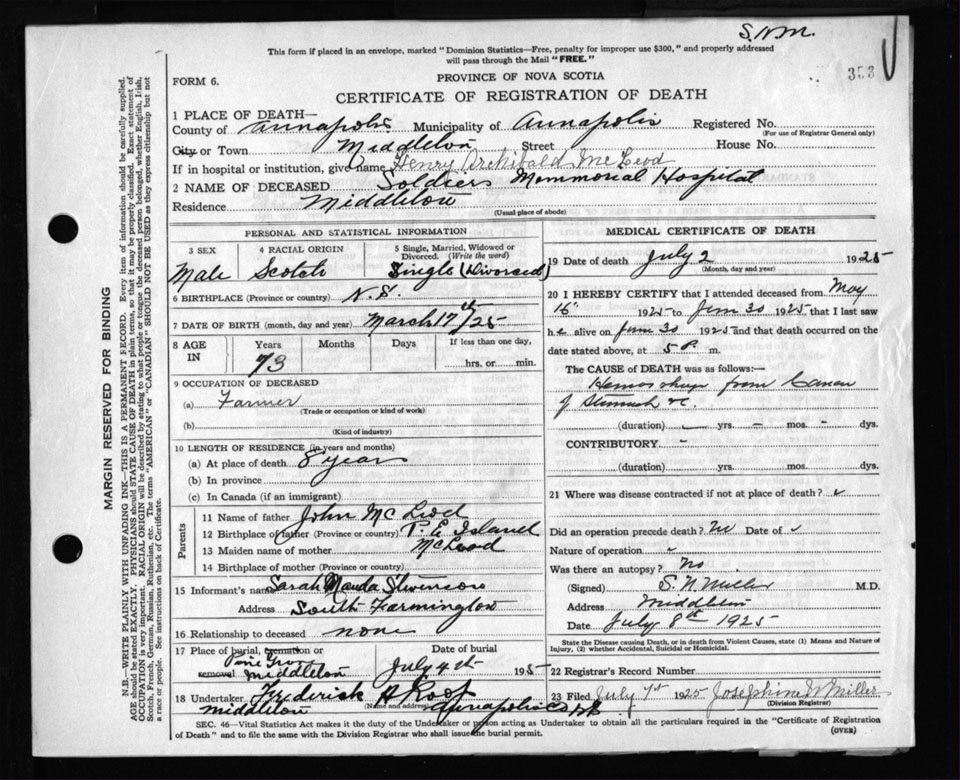 S.N.M.
353
This form if placed in an envelope, marked "Dominion Statistics—Free, penalty for improper use $300," and properly addressed
will pass through the Mail "FREE."
FORM 6.
PROVINCE OF NOVA SCOTIA
CERTIFICATE OF REGISTRATION OF DEATH
1 PLACE OF DEATH—
County of Annapolis Municipality of Annapolis Registered No.
(For use of Registrar General only)
City or Town Middleton Street House No.
If in hospital or institution, give name Henry Archibald McLeod
2 NAME OF DECEASED Soldiers Memmorial Hospital
Residence Middleton
(Usual place of abode)
PERSONAL AND STATISTICAL INFORMATION
3 SEX
Male
4 RACIAL ORIGIN
Scotch
5 Single, Married, Widowed or
Divorced. (Write the word)
Single (Divorced)
6 BIRTHPLACE (Province or country) N.S.
7 DATE OF BIRTH (month, day and year) March 17th/25
8 AGE
IN
Years
73
Months
Days
If less than one day,
hrs. or min.
9 OCCUPATION OF DECEASED
(a) Farmer
(Trade or occupation or kind of work)
(b)
(Kind of industry)
10 LENGTH OF RESIDENCE (in years and months)
(a) At place of death 8 years
(b) In province
(c) In Canada (if an immigrant)
Parents
11 Name of father John McLeod
12 Birthplace of father (Province or country) P E Island
13 Maiden name of mother McLeod
14 Birthplace of mother (Province or country)
15 Informant's name Sarah Manda Stevenson
Address South Farmington
16 Relationship to deceased none
17 Place of burial, cremation or
removal Pine Grove
Middleton
Date of burial
July 4th 1925
18 Undertaker Frederick A Roop
(Name and address)
Middleton Annapolis Co N.S.
MEDICAL CERTIFICATE OF DEATH
19 Date of death July 2 1925
(Month, day and year)
20 I HEREBY CERTIFY that I attended deceased from May
16 1925 to Jun 30 1925 that I last saw
h e alive on Jun 30 1925 and that death occurred on
the date stated above, at 5 P. m.
The CAUSE of DEATH was as follows:—
Hemorrhage from Cancer
of Stomach &c.
(duration) – yrs. – mos. – dys.
CONTRIBUTORY –
(duration) yrs. mos. dys.
21 Where was disease contracted if not at place of death?
Did an operation precede death? No Date of
Nature of operation
Was there an autopsy? No
(Signed) S. N. Miller M.D.
Address Middleton
Date July 8th 1925
State the Disease causing Death, or in death from Violent Causes, state (1) Means and Nature of
Injury, (2) whether Accidental, Suicidal or Homicidal.
22 Registrar's Record Number
23 Filed July 7th 1925 Josephine N. Miller
(Division Registrar)
SEC. 46—Vital Statistics Act makes it the duty of the Undertaker or person acting as Undertaker to obtain all the particulars required in the "Certificate of Registration
of Death" and to file the same with the Division Registrar who shall issue the burial permit.
(OVER)
MARGIN RESERVED FOR BINDING
N.B.—WRITE PLAINLY WITH UNFADING INK—THIS IS A PERMANENT RECORD. Every item of information should be carefully supplied.
AGE should be stated EXACTLY. PHYSICIANS should STATE CAUSE OF DEATH in plain terms, so that it may be properly classified. Exact statement of
OCCUPATION is very important. RACIAL ORIGIN will be described by stating to what people or tongue the deceased person belonged, whether English, Irish,
Scotch, French, German, Russian, Ruthenian, etc. The terms "AMERICAN" or "CANADIAN" SHOULD NOT BE USED as they express citizenship but not
a race or people. See instructions on back of Certificate.